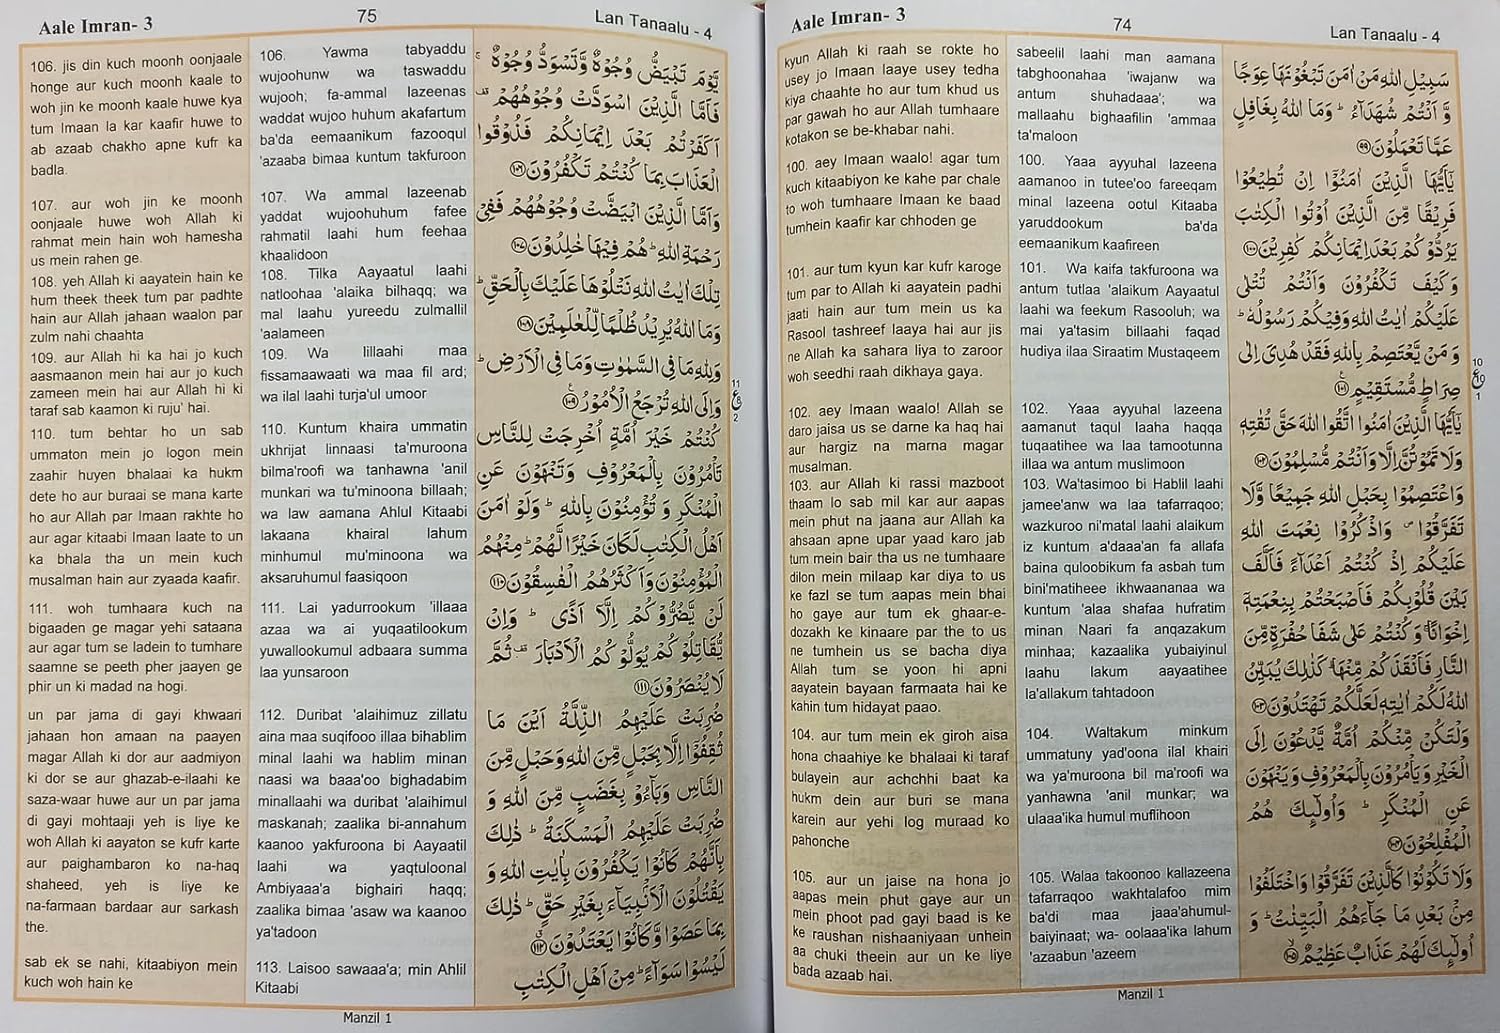 Lan Tanaalu - 4
74
Aale Imran- 3
سَبِيْلِ اللّٰهِ مَنْ اٰمَنَ تَبْغُوْنَهَا عِوَجًا
وَّ اَنْتُمْ شُهَدَآءُ ؕ وَمَا اللّٰهُ بِغَافِلٍ
عَمَّا تَعْمَلُوْنَ ﴿۹۹﴾
يٰۤاَيُّهَا الَّذِيْنَ اٰمَنُوْۤا اِنْ تُطِيْعُوْا
فَرِيْقًا مِّنَ الَّذِيْنَ اُوْتُوا الْكِتٰبَ
يَرُدُّوْكُمْ بَعْدَ اِيْمَانِكُمْ كٰفِرِيْنَ ﴿۱۰۰﴾
وَكَيْفَ تَكْفُرُوْنَ وَاَنْتُمْ تُتْلٰى
عَلَيْكُمْ اٰيٰتُ اللّٰهِ وَفِيْكُمْ رَسُوْلُهٗ ؕ
وَ مَنْ يَّعْتَصِمْ بِاللّٰهِ فَقَدْ هُدِيَ اِلٰى
صِرَاطٍ مُّسْتَقِيْمٍ ﴿۱۰۱﴾
يٰۤاَيُّهَا الَّذِيْنَ اٰمَنُوا اتَّقُوا اللّٰهَ حَقَّ تُقٰتِهٖ
وَلَا تَمُوْتُنَّ اِلَّا وَاَنْتُمْ مُّسْلِمُوْنَ ﴿۱۰۲﴾
وَاعْتَصِمُوْا بِحَبْلِ اللّٰهِ جَمِيْعًا وَّلَا
تَفَرَّقُوْا ۪ وَاذْكُرُوْا نِعْمَتَ اللّٰهِ
عَلَيْكُمْ اِذْ كُنْتُمْ اَعْدَآءً فَاَلَّفَ
بَيْنَ قُلُوْبِكُمْ فَاَصْبَحْتُمْ بِنِعْمَتِهٖۤ
اِخْوَانًا ۚ وَكُنْتُمْ عَلٰى شَفَا حُفْرَةٍ مِّنَ
النَّارِ فَاَنْقَذَكُمْ مِّنْهَا ؕ كَذٰلِكَ يُبَيِّنُ
اللّٰهُ لَكُمْ اٰيٰتِهٖ لَعَلَّكُمْ تَهْتَدُوْنَ ﴿۱۰۳﴾
وَلْتَكُنْ مِّنْكُمْ اُمَّةٌ يَّدْعُوْنَ اِلَى
الْخَيْرِ وَيَاْمُرُوْنَ بِالْمَعْرُوْفِ وَيَنْهَوْنَ
عَنِ الْمُنْكَرِ ؕ وَاُولٰٓئِكَ هُمُ
الْمُفْلِحُوْنَ ﴿۱۰۴﴾
وَلَا تَكُوْنُوْا كَالَّذِيْنَ تَفَرَّقُوْا وَاخْتَلَفُوْا
مِنْۢ بَعْدِ مَا جَآءَهُمُ الْبَيِّنٰتُ ؕ وَ
اُولٰٓئِكَ لَهُمْ عَذَابٌ عَظِيْمٌ ﴿۱۰۵﴾
10
ع
1
sabeelil laahi man aamana
tabghoonahaa 'iwajanw wa
antum shuhadaaa'; wa
mallaahu bighaafilin 'ammaa
ta'maloon
100. Yaaa ayyuhal lazeena
aamanoo in tutee'oo fareeqam
minal lazeena ootul Kitaaba
yaruddookum ba'da
eemaanikum kaafireen
101. Wa kaifa takfuroona wa
antum tutlaa 'alaikum Aayaatul
laahi wa feekum Rasooluh; wa
mai ya'tasim billaahi faqad
hudiya ilaa Siraatim Mustaqeem
102. Yaaa ayyuhal lazeena
aamanut taqul laaha haqqa
tuqaatihee wa laa tamootunna
illaa wa antum muslimoon
103. Wa'tasimoo bi Hablil laahi
jamee'anw wa laa tafarraqoo;
wazkuroo ni'matal laahi alaikum
iz kuntum a'daaa'an fa allafa
baina quloobikum fa asbah tum
bini'matiheee ikhwaananaa wa
kuntum 'alaa shafaa hufratim
minan Naari fa anqazakum
minhaa; kazaalika yubaiyinul
laahu lakum aayaatihee
la'allakum tahtadoon
104. Waltakum minkum
ummatuny yad'oona ilal khairi
wa ya'muroona bil ma'roofi wa
yanhawna 'anil munkar; wa
ulaaa'ika humul muflihoon
105. Walaa takoonoo kallazeena
tafarraqoo wakhtalafoo mim
ba'di maa jaaa'ahumul-
baiyinaat; wa- oolaaa'ika lahum
'azaabun 'azeem
kyun Allah ki raah se rokte ho
usey jo Imaan laaye usey tedha
kiya chaahte ho aur tum khud us
par gawah ho aur Allah tumhaare
kotakon se be-khabar nahi.
100. aey Imaan waalo! agar tum
kuch kitaabiyon ke kahe par chale
to woh tumhaare Imaan ke baad
tumhein kaafir kar chhoden ge
101. aur tum kyun kar kufr karoge
tum par to Allah ki aayatein padhi
jaati hain aur tum mein us ka
Rasool tashreef laaya hai aur jis
ne Allah ka sahara liya to zaroor
woh seedhi raah dikhaya gaya.
102. aey Imaan waalo! Allah se
daro jaisa us se darne ka haq hai
aur hargiz na marna magar
musalman.
103. aur Allah ki rassi mazboot
thaam lo sab mil kar aur aapas
mein phut na jaana aur Allah ka
ahsaan apne upar yaad karo jab
tum mein bair tha us ne tumhaare
dilon mein milaap kar diya to us
ke fazl se tum aapas mein bhai
ho gaye aur tum ek ghaar-e-
dozakh ke kinaare par the to us
ne tumhein us se bacha diya
Allah tum se yoon hi apni
aayatein bayaan farmaata hai ke
kahin tum hidayat paao.
104. aur tum mein ek giroh aisa
hona chaahiye ke bhalaai ki taraf
bulayein aur achchhi baat ka
hukm dein aur buri se mana
karein aur yehi log muraad ko
pahonche
105. aur un jaise na hona jo
aapas mein phut gaye aur un
mein phoot pad gayi baad is ke
ke raushan nishaaniyaan unhein
aa chuki theein aur un ke liye
bada azaab hai.
Manzil 1
Lan Tanaalu - 4
75
Aale Imran- 3
يَّوْمَ تَبْيَضُّ وُجُوْهٌ وَّتَسْوَدُّ وُجُوْهٌ ۚ
فَاَمَّا الَّذِيْنَ اسْوَدَّتْ وُجُوْهُهُمْ ۟
اَكَفَرْتُمْ بَعْدَ اِيْمَانِكُمْ فَذُوْقُوا
الْعَذَابَ بِمَا كُنْتُمْ تَكْفُرُوْنَ ﴿۱۰۶﴾
وَاَمَّا الَّذِيْنَ ابْيَضَّتْ وُجُوْهُهُمْ فَفِيْ
رَحْمَةِ اللّٰهِ ؕ هُمْ فِيْهَا خٰلِدُوْنَ ﴿۱۰۷﴾
تِلْكَ اٰيٰتُ اللّٰهِ نَتْلُوْهَا عَلَيْكَ بِالْحَقِّ ؕ
وَمَا اللّٰهُ يُرِيْدُ ظُلْمًا لِّلْعٰلَمِيْنَ ﴿۱۰۸﴾
وَلِلّٰهِ مَا فِي السَّمٰوٰتِ وَمَا فِي الْاَرْضِ ؕ
وَاِلَى اللّٰهِ تُرْجَعُ الْاُمُوْرُ ﴿۱۰۹﴾
كُنْتُمْ خَيْرَ اُمَّةٍ اُخْرِجَتْ لِلنَّاسِ
تَاْمُرُوْنَ بِالْمَعْرُوْفِ وَتَنْهَوْنَ عَنِ
الْمُنْكَرِ وَ تُؤْمِنُوْنَ بِاللّٰهِ ؕ وَلَوْ اٰمَنَ
اَهْلُ الْكِتٰبِ لَكَانَ خَيْرًا لَّهُمْ ؕ مِنْهُمُ
الْمُؤْمِنُوْنَ وَاَكْثَرُهُمُ الْفٰسِقُوْنَ ﴿۱۱۰﴾
لَنْ يَّضُرُّوْكُمْ اِلَّاۤ اَذًى ؕ وَاِنْ
يُّقَاتِلُوْكُمْ يُوَلُّوْكُمُ الْاَدْبَارَ ۟ ثُمَّ
لَا يُنْصَرُوْنَ ﴿۱۱۱﴾
ضُرِبَتْ عَلَيْهِمُ الذِّلَّةُ اَيْنَ مَا
ثُقِفُوْۤا اِلَّا بِحَبْلٍ مِّنَ اللّٰهِ وَحَبْلٍ مِّنَ
النَّاسِ وَبَآءُوْ بِغَضَبٍ مِّنَ اللّٰهِ وَ
ضُرِبَتْ عَلَيْهِمُ الْمَسْكَنَةُ ؕ ذٰلِكَ
بِاَنَّهُمْ كَانُوْا يَكْفُرُوْنَ بِاٰيٰتِ اللّٰهِ وَ
يَقْتُلُوْنَ الْاَنْۢبِيَآءَ بِغَيْرِ حَقٍّ ؕ ذٰلِكَ
بِمَا عَصَوْا وَّكَانُوْا يَعْتَدُوْنَ ﴿۱۱۲﴾
لَيْسُوْا سَوَآءً ؕ مِنْ اَهْلِ الْكِتٰبِ
11
ع
2
106. Yawma tabyaddu
wujoohunw wa taswaddu
wujooh; fa-ammal lazeenas
waddat wujoo huhum akafartum
ba'da eemaanikum fazooqul
'azaaba bimaa kuntum takfuroon
107. Wa ammal lazeenab
yaddat wujoohuhum fafee
rahmatil laahi hum feehaa
khaalidoon
108. Tilka Aayaatul laahi
natloohaa 'alaika bilhaqq; wa
mal laahu yureedu zulmallil
'aalameen
109. Wa lillaahi maa
fissamaawaati wa maa fil ard;
wa ilal laahi turja'ul umoor
110. Kuntum khaira ummatin
ukhrijat linnaasi ta'muroona
bilma'roofi wa tanhawna 'anil
munkari wa tu'minoona billaah;
wa law aamana Ahlul Kitaabi
lakaana khairal lahum
minhumul mu'minoona wa
aksaruhumul faasiqoon
111. Lai yadurrookum 'illaaa
azaa wa ai yuqaatilookum
yuwallookumul adbaara summa
laa yunsaroon
112. Duribat 'alaihimuz zillatu
aina maa suqifooo illaa bihablim
minal laahi wa hablim minan
naasi wa baaa'oo bighadabim
minallaahi wa duribat 'alaihimul
maskanah; zaalika bi-annahum
kaanoo yakfuroona bi Aayaatil
laahi wa yaqtuloonal
Ambiyaaa'a bighairi haqq;
zaalika bimaa 'asaw wa kaanoo
ya'tadoon
113. Laisoo sawaaa'a; min Ahlil
Kitaabi
106. jis din kuch moonh oonjaale
honge aur kuch moonh kaale to
woh jin ke moonh kaale huwe kya
tum Imaan la kar kaafir huwe to
ab azaab chakho apne kufr ka
badla.
107. aur woh jin ke moonh
oonjaale huwe woh Allah ki
rahmat mein hain woh hamesha
us mein rahen ge.
108. yeh Allah ki aayatein hain ke
hum theek theek tum par padhte
hain aur Allah jahaan waalon par
zulm nahi chaahta
109. aur Allah hi ka hai jo kuch
aasmaanon mein hai aur jo kuch
zameen mein hai aur Allah hi ki
taraf sab kaamon ki ruju' hai.
110. tum behtar ho un sab
ummaton mein jo logon mein
zaahir huyen bhalaai ka hukm
dete ho aur buraai se mana karte
ho aur Allah par Imaan rakhte ho
aur agar kitaabi Imaan laate to un
ka bhala tha un mein kuch
musalman hain aur zyaada kaafir.
111. woh tumhaara kuch na
bigaaden ge magar yehi sataana
aur agar tum se ladein to tumhare
saamne se peeth pher jaayen ge
phir un ki madad na hogi.
un par jama di gayi khwaari
jahaan hon amaan na paayen
magar Allah ki dor aur aadmiyon
ki dor se aur ghazab-e-ilaahi ke
saza-waar huwe aur un par jama
di gayi mohtaaji yeh is liye ke
woh Allah ki aayaton se kufr karte
aur paighambaron ko na-haq
shaheed, yeh is liye ke
na-farmaan bardaar aur sarkash
the.
sab ek se nahi, kitaabiyon mein
kuch woh hain ke
Manzil 1